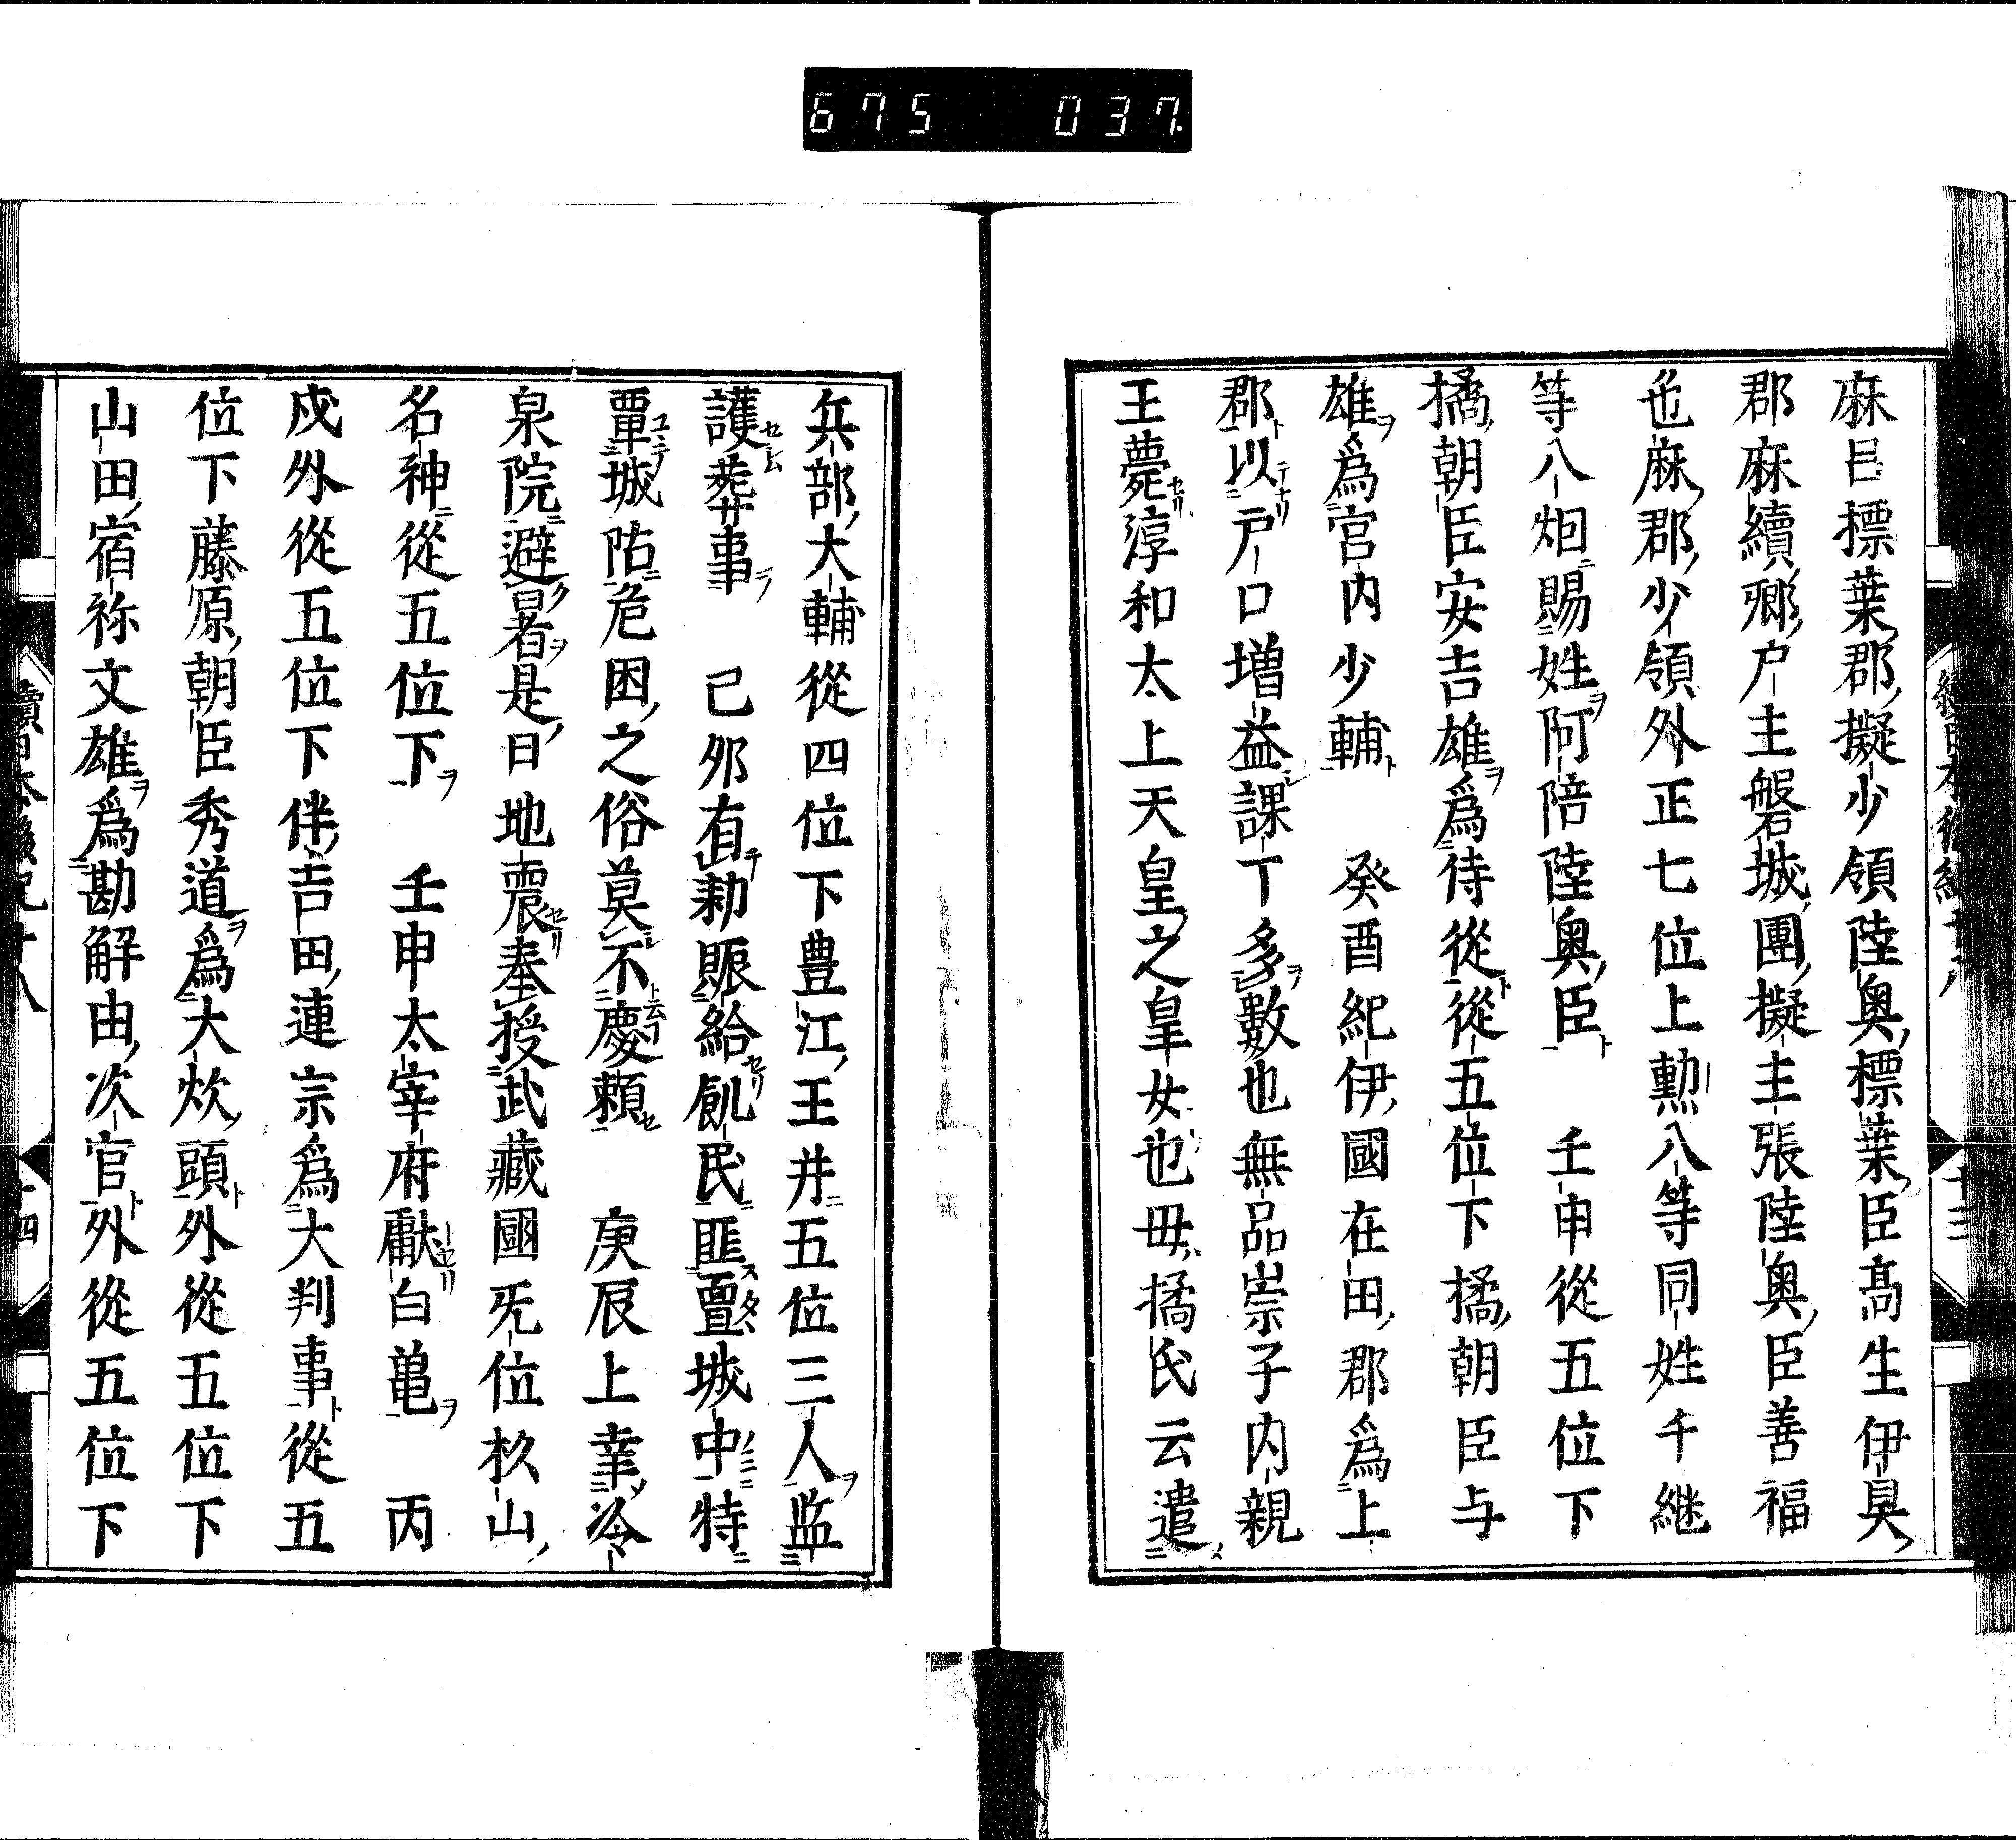 675 037
麻呂標葉郡擬少領陸奥標葉臣高生伊具
郡麻續郷戸主磐城團擬主張陸奥臣善福
色麻郡少領外正七位上勲八等同姓千継
等八烟賜姓阿陪陸奥臣 壬申從五位下
橘朝臣安吉雄爲侍從從五位下橘朝臣与
雄爲宮内少輔 癸酉紀伊國在田郡爲上
郡以戸口増益課丁多數也無品崇子内親
王薨淳和太上天皇之皇女也毋橘氏云遣
兵部大輔從四位下豊江王井五位三人监
護葬事 己夘有勅賑給飢民匪亶城中特
覃城阽危困之俗莫不慶頼 庚辰上幸冷
泉院避暑是日地震奉授武藏國旡位杉山
名神從五位下 壬申太宰府獻白亀 丙
戍外從五位下伴吉田連宗爲大判事從五
位下藤原朝臣秀道爲大炊頭外從五位下
山田宿祢文雄爲勘解由次官外從五位下